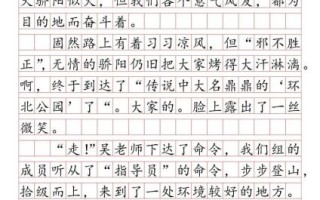 天骄阳似火，但我们各个意气风发，都为
目的地而奋斗着。
固然路上有着习习凉风，但“邪不胜
正”，无情的骄阳仍旧把大家烤得大汗淋漓。
啊，终于到达了“传说中大名鼎鼎的‘环
北公园’了“。大家的。脸上露出了一丝
微笑。
“走！”吴老师下达了命令，我们组的
成员听从了“指导员”的命令，步步登山，
拾级而上，来到了一处环境较好的地方。